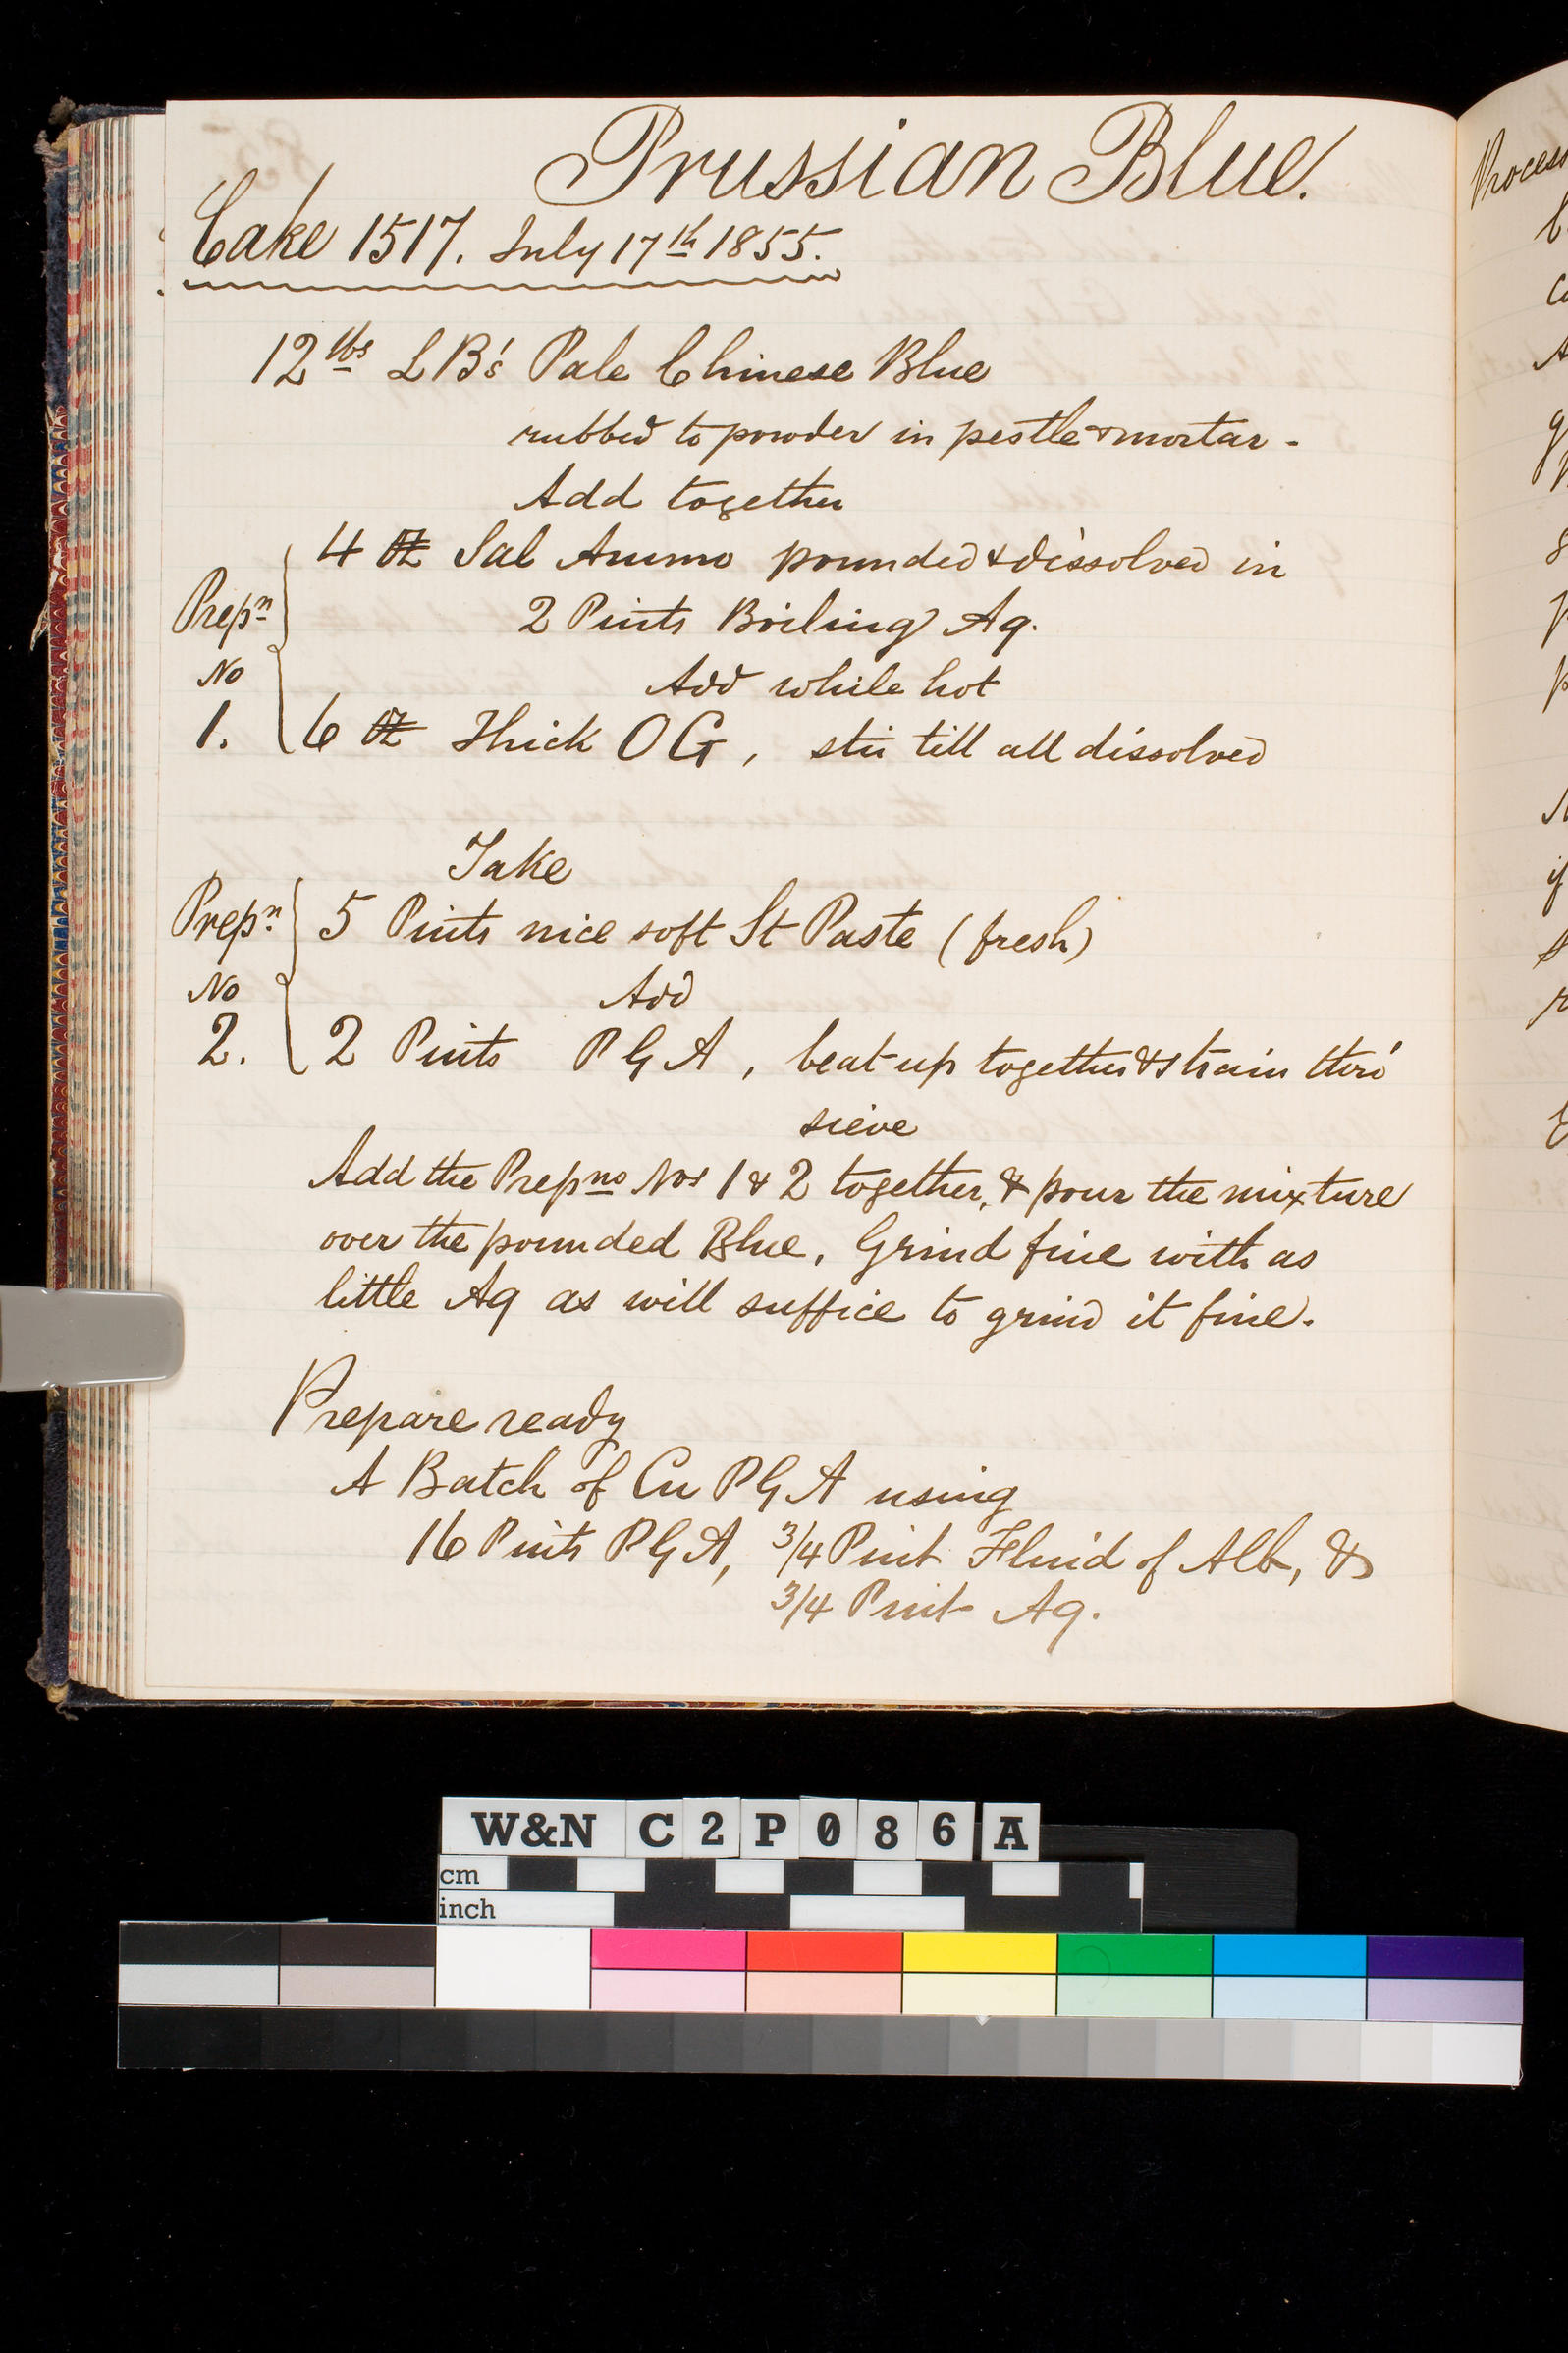 Prussian Blue.
Cake 1517. July 17th 1855.
12 lbs LB's Pale Chinese Blue
rubbed to powder in pestle & mortar -
Add together
4 oz Sal Ammo pounded & dissolved in
2 Pints Boiling Aq.
Add while hot
Prepn No 1. 6 oz Thick OG, stir till all dissolved
Take
Prepn 5 Pints nice soft St Paste (fresh)
No Add
2. 2 Pints PGA, beat up together & strain thro'
sieve
Add the Prepns Nos 1 & 2 together, & pour the mixture
over the pounded Blue, Grind fine with as
little Aq as will suffice to grind it fine.
Prepare ready
A Batch of Cu PGA using
16 Pints PGA, 3/4 Pint Fluid of Alb, &
3/4 Pint Aq.
Process
W&N C2P086A
cm
inch